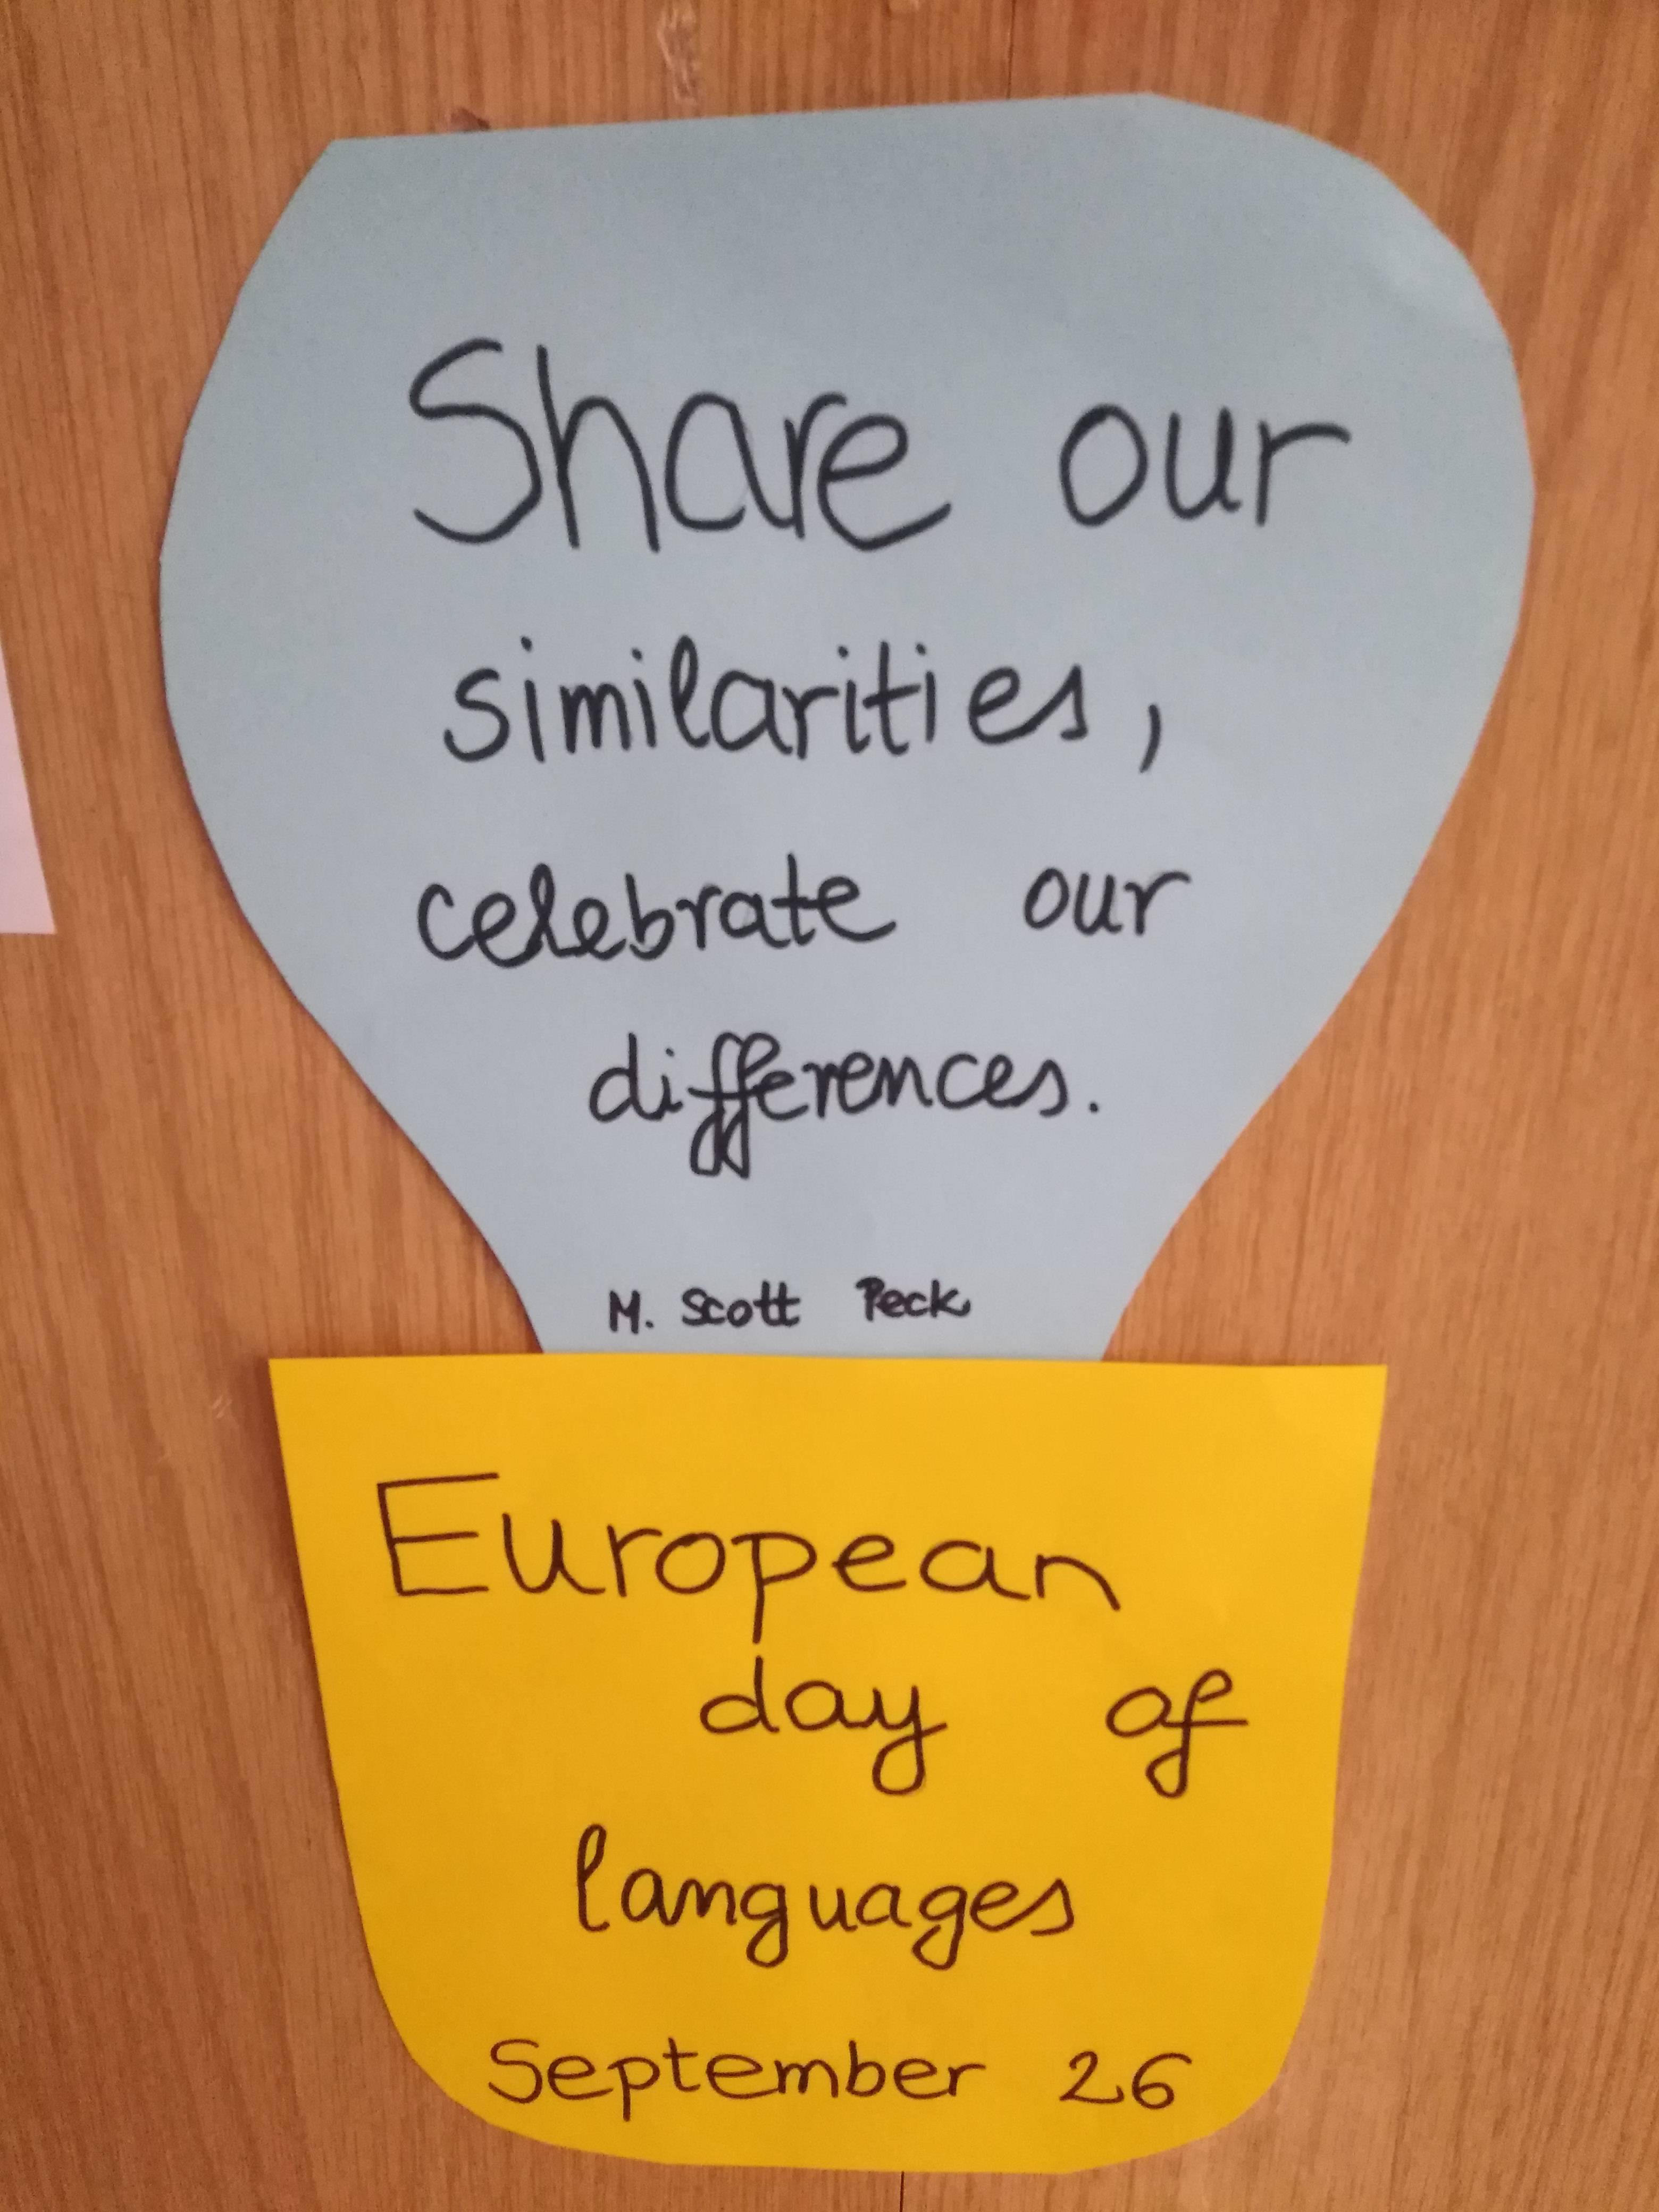 Share our
similarities,
celebrate our
differences.
M. Scott Peck
European
day of
languages
September 26